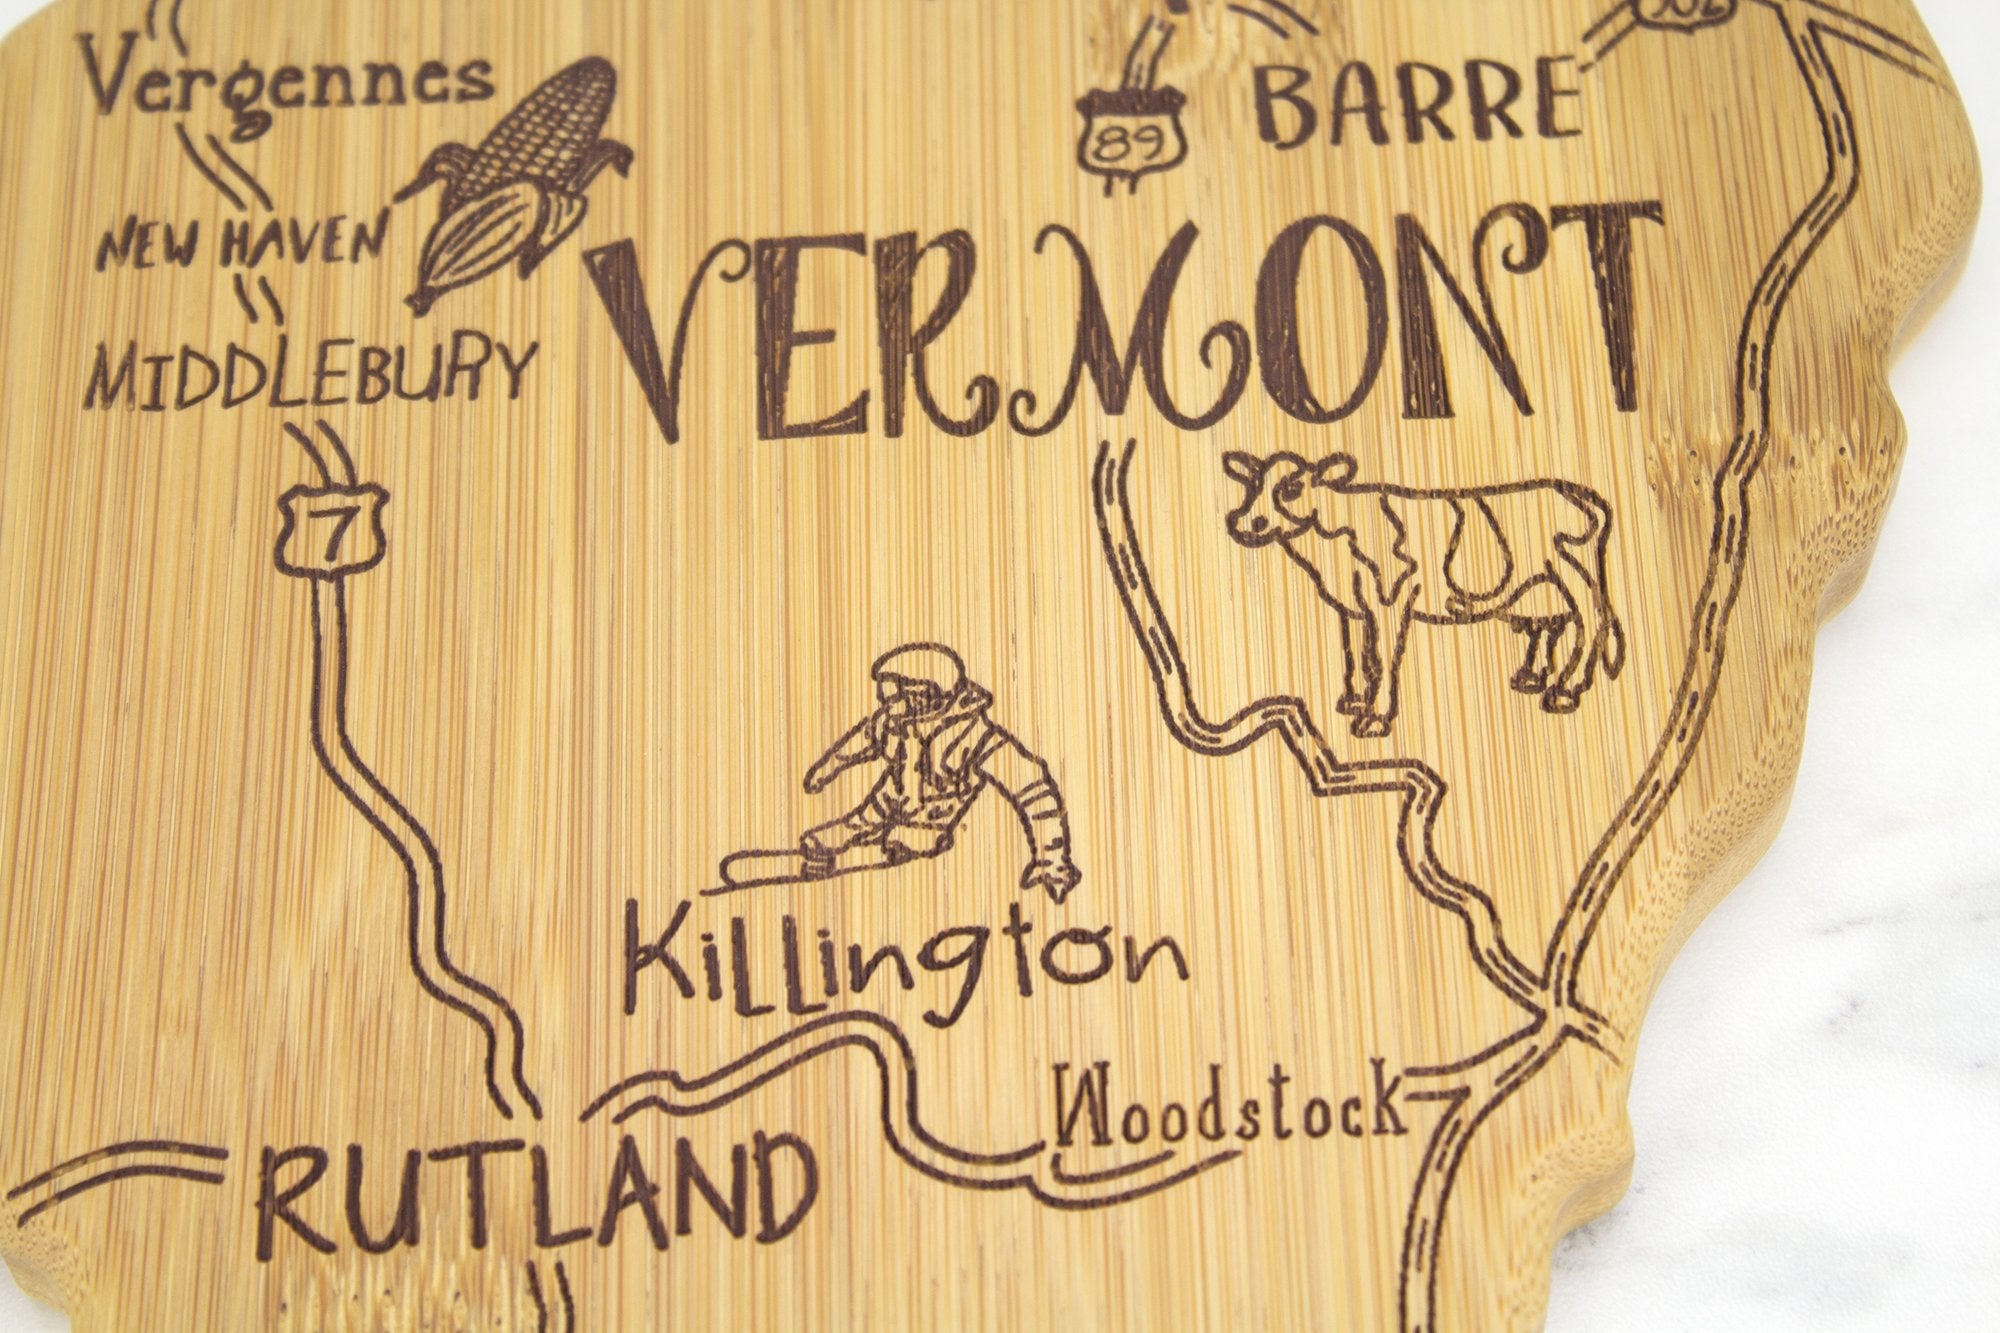 Vergennes
BARRE
89
NEW HAVEN
VERMONT
MIDDLEBURY
7
Killington
Woodstock
RUTLAND